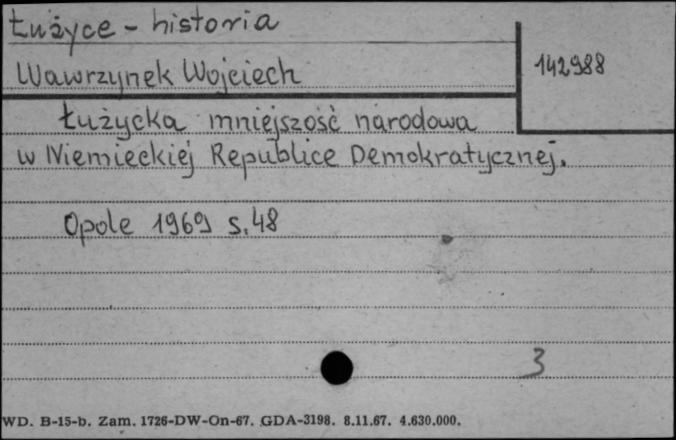 Łużyce - historia
142988
Wawrzynek Wojciech
Łużycka mniejszość narodowa
w Niemieckiej Republice Demokratycznej.
Opole 1969 s. 48
3
WD. B-15-b. Zam. 1726-DW-On-67. GDA-3198. 8.11.67. 4.630.000.